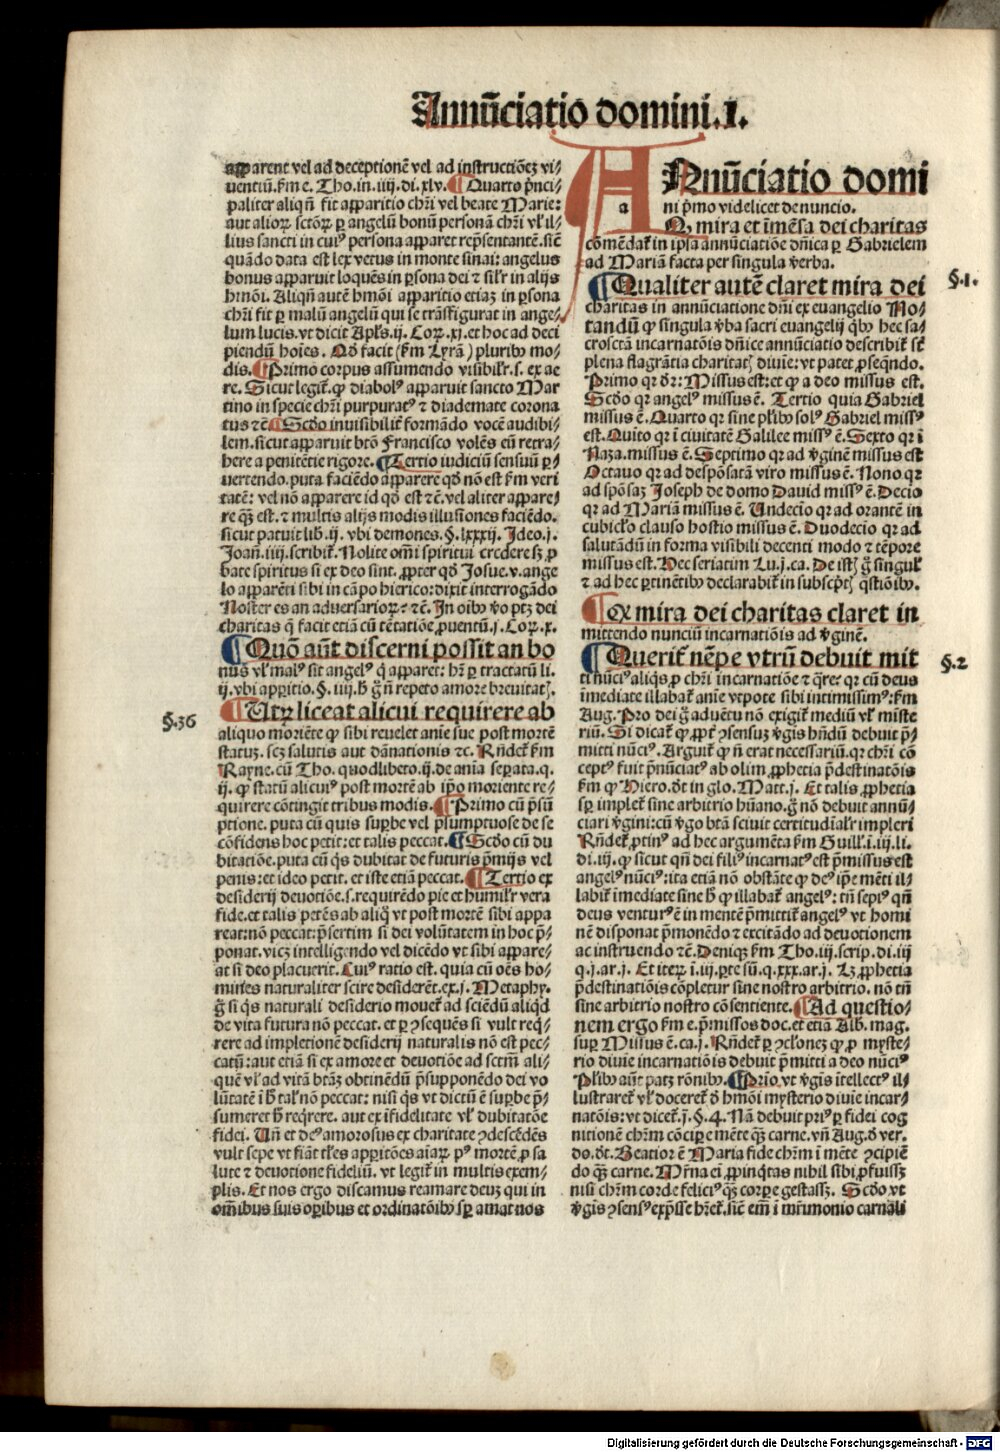 Annūciatio domini .I.
apparent vel ad deceptionē vel ad instructiōeʒ vi⸗
uentiū. ẜm e. Tho. in. iiij. di. xlv. ¶ Quarto p̄nci
paliter aliqñ fit apparitio chr̄i vel beate Marie:
aut alioꝝ sctōꝝ ꝑ angelū bonū personā chr̄i vl̓ il⸗
lius sancti in cuiꝰ persona apparet rep̄sentantē. sic̄
quādo data est lex vetus in monte sinai: angelus
bonus apparuit loquēs in ꝑsona dei ⁊ sil̓r in alijs
hm̄oi. Aliqñ autē hm̄oi apparitio etiaʒ in ꝑsona
chr̄i fit ꝑ malū angelū qui se trāsfigurat in ange⸗
lum lucis. vt dicit Apl̓s. ij. Coꝝ. xj. et hoc ad deci
piendū hoīes. Qd̓ facit (ẜm Lyrā) pluribꝰ mo⸗
dis. ¶ Primo corpus assumendo visibil̓r. s. ex ae
re. Sicut legit̄. ꝙ diabolꝰ apparuit sancto Mar
tino in specie chr̄i purpuratꝰ ⁊ diademate corona
tus ⁊c̄. ¶ Scd̓o invisibilit̄ formādo vocē audibi⸗
lem. sicut apparuit btō Francisco volēs eū retra⸗
here a penitētie rigore. ¶ Tertio iudiciū sensuū ꝑ⸗
vertendo. puta faciēdo apparere qd̓ nō est ẜm veri
tatē: vel nō apparere id qd̓ est ⁊c̄. vel aliter appare⸗
re qʒ est. ⁊ multis alijs modis illusiones faciēdo.
sicut patuit lib. ij. vbi demones. §. lxxxij. Ideo. j.
Joañ. iiij. scribit̄. Nolite om̄i spiritui credere sʒ ꝓ
bate spiritus si ex deo sint. ꝓpter qd̓ Josue. v. ange
lo apparēti sibi in cāpo hierico: dixit interrogādo
Noster es an adversarioꝝ? ⁊c̄. In oībꝰ v̓o ptʒ dei
charitas q̄ facit etiā cū tētatiōe ꝓuentū. j. Coꝝ. x.
¶ Quō aūt discerni possit an bo
nus vl̓ malꝰ sit angelꝰ q̄ apparet: hr̄ ꝑ tractatū li.
ij. vbi apparitio. §. iiij. h̄ ḡ ñ repeto amore brevitat̄.
§. 36
¶ Utꝝ liceat alicui requirere ab
aliquo moriēte ꝙ sibi revelet aniē sue post mortē
statuʒ. scʒ salutis aut dānationis ⁊c. Rn̄det ẜm
Rayne. cū Tho. quodlibeto. ij. de aīa separata. q.
ij. ꝙ statū alicuiꝰ post mortē ab ip̄o moriente re⸗
quirere cōtingit tribus modis. ¶ Primo cū p̄sū
ptione. puta cū quis suꝑbe vel p̄sumptuose de se
cōfidens hoc petit: et talis peccat. ¶ Scd̓o cū du
bitatiōe. puta cū q̇s dubitat de futuris p̄mijs vel
penis: et ideo petit. et iste etiā peccat. ¶ Tertio ex
desiderij deuotiōe. s. requirēdo pie et humil̓r vera
fide. et talis petēs ab aliq̇ vt post mortē sibi appa
reat: nō peccat: p̄sertim si dei volūtatem in hoc p̄⸗
ponat. vicʒ intelligendo vel dicēdo vt sibi appare⸗
at si deo placuerit. Cuiꝰ ratio est. quia cū oēs ho⸗
mines naturaliter scire desiderēt. ex. j. Metaphy.
ḡ si q̇s naturali desiderio mouet̄ ad sciēdū aliqd̓
de vita futura nō peccat. et ꝑ ꝯsequēs si vult reqr̄⸗
rere ad impletionē desiderij naturalis nō est pec⸗
catū: aut etiā si ex amore et deuotiōe ad sctm̄ ali⸗
quē vl̓ ad vitā btāʒ obtinēdū p̄supponēdo dei vo
lūtatē ī h̄ tal̓ nō peccat: nisi q̇s vt dictū ē suꝑbe p̄⸗
sumeret h̄ reqr̄ere. aut ex ifidelitate vl̓ dubitatōe
fidei. Uñ et deꝰ amorosus ex charitate ꝯdescēdēs
vult sepe vt fiāt tl̓es appritōes aīaꝝ pꝰ mortē ꝓ sa
lute ⁊ deuotione fideliū. vt legit̄ in multis exem⸗
plis. Et nos ergo discamus reamare deuʒ qui in
om̄ibus suis oꝑibus et ordinatōibꝰ sꝑ amat nos
ANnūciatio domi
a
ni p̄mo videlicet de nuncio.
Qꝫ mira et īmēsa dei charitas
cōmēdat̄ in ip̄sa annūciatiōe dn̄ica ꝑ Gabrielem
ad Mariā facta per singula v̓ba.
¶ Qualiter autē claret mira dei
§. 1.
charitas in annūciatione dn̄i ex euangelio No⸗
tandū ꝙ singula v̓ba sacri euangelij q̇bꝰ hec sa⸗
crosctā incarnatōis dn̄ice annūciatio describit̄ sūt
plena flagrātia charitatꝭ diuīe: vt patet ꝓseqn̄do.
Primo qr dr̄: Missus est: et ꝙ a deo missus est.
Scd̓o qr angelꝰ missus ē. Tertio quia Gabriel
missus ē. Quarto qr sine pl̓ibꝰ solꝰ Gabriel missꝰ
est. Quīto qr ī ciuitatē Galilee missꝰ ē. Sexto qr ī
Naʒa. missus ē. Septimo qr ad v̓ginē missus est
Octauo qr ad despōsatā viro missus ē. Nono qr
ad spōsaʒ Joseph de domo Dauid missꝰ ē. Decīo
qr ad Mariā missus ē. Undecīo qr ad orantē in
cubicl̓o clauso hostio missus ē. Duodecīo qr ad
salutādū in forma visibili decenti modo ⁊ tēpore
missus est. Hec seriatim Lu. j. ca. De istꝭ ḡ singul̓
⁊ ad hec ꝑtinētibꝰ declarabit̄ in subscptꝭ qstiōibꝰ.
¶ Qꝫ mira dei charitas claret in
mittendo nunciū incarnatiōis ad v̓ginē.
¶ Querit̄ nēpe vtrū debuit mit
§. 2
ti nūciꝰ aliq̇s ꝓ chr̄i incarnatiōe ⁊ q̄re: qr cū deus
īmediate illabat̄ aīe vtpote sibi intimissimꝰ: ẜm
Aug. Pro dei ḡ aduētu nō exigit̄ mediū vl̓ miste
riū. Si dicat̄ ꝙ ꝓpt̄ ꝯsensuʒ v̓gis hn̄dū debuit p̄⸗
mitti nūciꝰ. Arguit̄ ꝙ ñ erat necessariū. qr chr̄i cō
ceptꝰ fuit p̄nūciatꝰ ab olim ꝓphetia p̄destinatōis
ẜm ꝙ Hiero. d̄t in glo. Matt. j. Et talis ꝓphetia
sꝑ implet̄ sine arbitrio hūano. ḡ nō debuit annū⸗
ciari v̓gini: cū v̓go btā sciuit certitudīal̓r impleri
Rn̄det̄ ꝓtinꝰ ad hec argumēta ẜm Guill̓. ī. iij. li.
di. iij. ꝙ sicut qn̄ dei filiꝰ incarnatꝰ est p̄missus est
angelꝰ nūciꝰ: ita etiā nō obstāte ꝙ deꝰ ip̄e mēti il⸗
labit̄ īmediate sine h̄ ꝙ illabat̄ angelꝰ: tn̄ sepiꝰ qn̄
deus venturꝰ ē in mentē p̄mittit̄ angelꝰ vt homi
nē disponat p̄monēdo ⁊ excitādo ad deuotionem
ac instruendo ⁊c̄. Deniqʒ ẜm Tho. iij. scrip. di. iij
q. j. ar. j. Et iteꝝ ī. iij. ꝑte sū. q. xxx. ar. j. Lʒ ꝓphetia
p̄destinatiōis cōpletur sine nostro arbitrio. nō tn̄
sine arbitrio nostro cōsentiente. ¶ Ad questio⸗
nem ergo ẜm e. p̄missos doc. et etiā Alb. mag.
suꝑ Missus ē. ca. j. Rn̄det̄ ꝑ ꝯcl̓oneʒ ꝙ ꝓ myste⸗
rio diuīe incarnatiōis debuit p̄mitti a deo nūciꝰ
Pl̓ibꝰ aūt patʒ rōnibꝰ. ¶ Prīo vt v̓gis ītellectꝰ il⸗
lustraret̄ vl̓ doceret̄ d̓ hm̄oi mysterio diuīe incar⸗
natōis: vt dicet̄. j. §. 4. Nā debuit priꝰ ꝑ fidei cog
nitionē chr̄m cōciꝑe mēte qʒ carne. vn̄ Aug. d̓ ver.
do. d̄t. Beatior ē Maria fide chr̄m ī mēte ꝯcipiē
do qʒ carne. Mr̄na ei ꝓpinq̇tas nihil sibi ꝓfuissʒ
nisi chr̄m corde feliciꝰ qʒ corꝑe gestassʒ. Scd̓o vt
v̓gis ꝯsensꝰ exp̄sse hr̄et̄. sic̄ em̄ ī mr̄imonio carnali
Digitalisierung gefördert durch die Deutsche Forschungsgemeinschaft - DFG